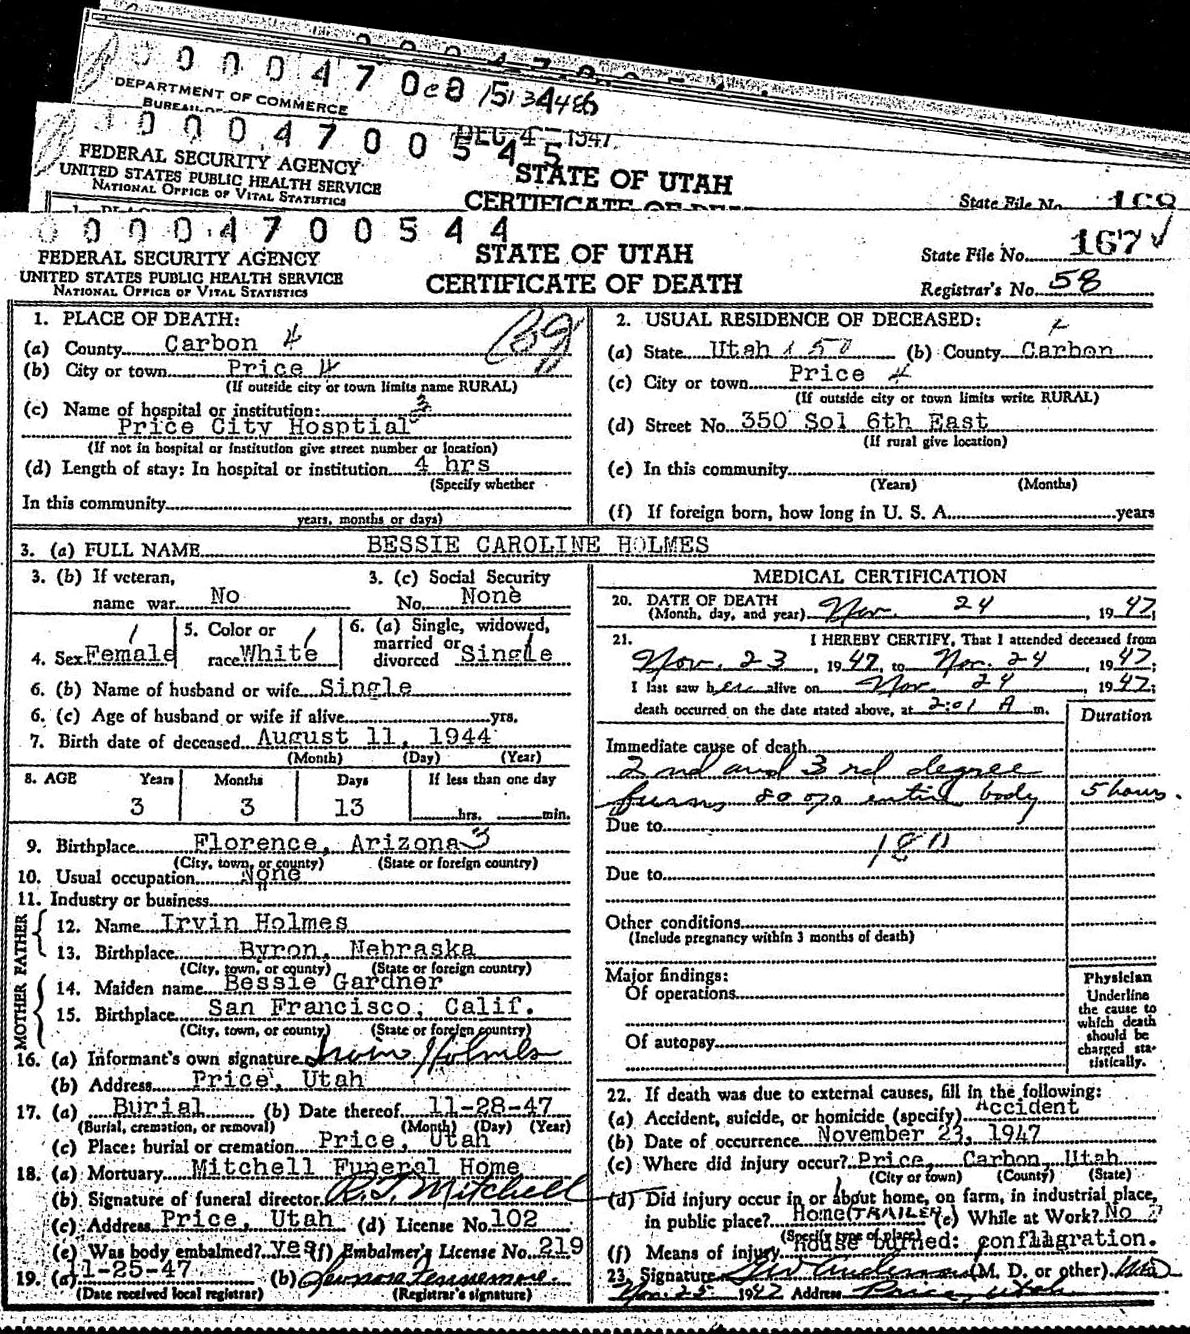 0 0 0 0 4 7 0 0 5
DEPARTMENT OF COMMERCE
0 0 0 4 7 0 0 5 4 5
DEC 4 1947
FEDERAL SECURITY AGENCY
UNITED STATES PUBLIC HEALTH SERVICE
NATIONAL OFFICE OF VITAL STATISTICS
STATE OF UTAH
CERTIFICATE OF DEATH
State File No. 168
0 0 0 4 7 0 0 5 4 4
FEDERAL SECURITY AGENCY
UNITED STATES PUBLIC HEALTH SERVICE
NATIONAL OFFICE OF VITAL STATISTICS
STATE OF UTAH
CERTIFICATE OF DEATH
State File No. 167
Registrar's No. 58
1. PLACE OF DEATH:
(a) County Carbon 4
(b) City or town Price 4
(If outside city or town limits name RURAL)
(c) Name of hospital or institution: 3
Price City Hosptial
(If not in hospital or institution give street number or location)
(d) Length of stay: In hospital or institution 4 hrs
(Specify whether
In this community
years, months or days)
2. USUAL RESIDENCE OF DECEASED:
(a) State Utah (b) County Carbon
(c) City or town Price 4
(If outside city or town limits write RURAL)
(d) Street No. 350 Sol 6th East
(If rural give location)
(e) In this community
(Years) (Months)
(f) If foreign born, how long in U. S. A. years
3. (a) FULL NAME BESSIE CAROLINE HOLMES
3. (b) If veteran,
name war No
3. (c) Social Security
No. None
4. Sex Female
5. Color or
race White
6. (a) Single, widowed,
married or
divorced Single
6. (b) Name of husband or wife Single
6. (c) Age of husband or wife if alive yrs.
7. Birth date of deceased August 11, 1944
(Month) (Day) (Year)
8. AGE Years Months Days If less than one day
3 3 13 hrs. min.
9. Birthplace Florence, Arizona 3
(City, town, or county) (State or foreign country)
10. Usual occupation None
11. Industry or business "
FATHER
12. Name Irvin Holmes
13. Birthplace Byron, Nebraska
(City, town, or county) (State or foreign country)
MOTHER
14. Maiden name Bessie Gardner
15. Birthplace San Francisco, Calif.
(City, town, or county) (State or foreign country)
16. (a) Informant's own signature Irvin Holmes
(b) Address Price, Utah
17. (a) Burial (b) Date thereof 11-28-47
(Burial, cremation, or removal) (Month) (Day) (Year)
(c) Place: burial or cremation Price, Utah
18. (a) Mortuary Mitchell Funeral Home
(b) Signature of funeral director R. J. Mitchell
(c) Address Price, Utah (d) License No. 102
(e) Was body embalmed? yes (f) Embalmer's License No. 219
19. (a) 11-25-47 (b)
(Date received local registrar) (Registrar's signature)
MEDICAL CERTIFICATION
20. DATE OF DEATH
(Month, day, and year) Nov. 24, 1947
21. I HEREBY CERTIFY, That I attended deceased from
Nov. 23, 1947, to Nov. 24, 1947;
I last saw her alive on Nov. 24, 1947;
death occurred on the date stated above, at 2:01 A m.
Duration
Immediate cause of death
2nd and 3rd degree
burns 80% entire body 5 hours.
Due to
1811
Due to
Other conditions
(Include pregnancy within 3 months of death)
Major findings:
Of operations
Of autopsy
Physician
Underline
the cause to
which death
should be
charged sta-
tistically.
22. If death was due to external causes, fill in the following:
(a) Accident, suicide, or homicide (specify) Accident
(b) Date of occurrence November 23, 1947
(c) Where did injury occur? Price, Carbon, Utah
(City or town) (County) (State)
(d) Did injury occur in or about home, on farm, in industrial place,
in public place? Home (TRAILER) (e) While at Work? No
(Specify type of place)
(f) Means of injury house burned: conflagration.
23. Signature (M. D. or other) MD
Nov. 25 1947 Address Price, Utah